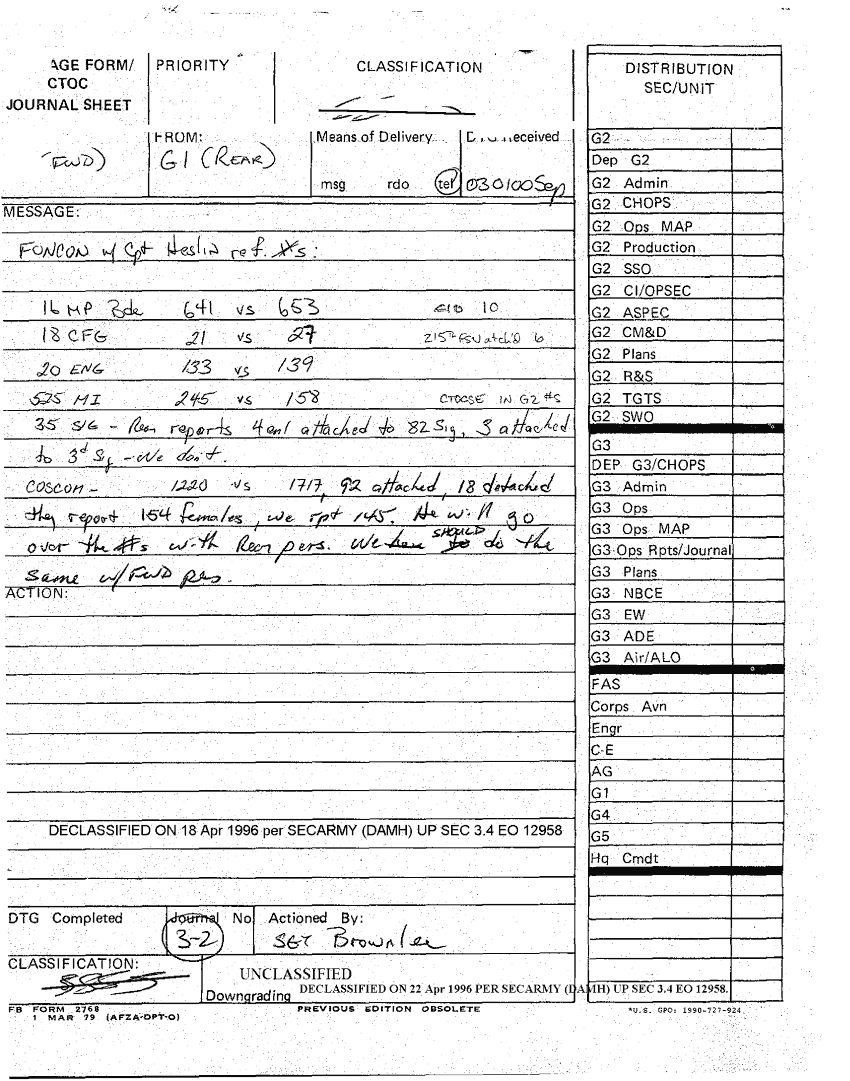 AGE FORM/
CTOC
JOURNAL SHEET
PRIORITY
CLASSIFICATION
FWD)
FROM:
G1 (REAR)
Means of Delivery
msg rdo tel
Received
030100Sep
MESSAGE:
FONCON w/ Cpt Heslin ref. #s:
16 MP Bde 641 vs 653 CID 10
18 CFG 21 vs 27 215th FSU atch'D 6
20 ENG 133 vs 139
525 MI 245 vs 158 CTOCSE IN G2 #S
35 SIG - Rear reports 4 enl attached to 82 Sig, 3 attached
to 3d Sig - We don't.
COSCOM - 1220 vs 1717, 92 attached, 18 detached
they report 154 females, we rpt 145. He will go
over the #s with Rear pers. We SHOULD do the
same w/ FWD pers.
ACTION:
DECLASSIFIED ON 18 Apr 1996 per SECARMY (DAMH) UP SEC 3.4 EO 12958
DTG Completed
Journal No
3-2
Actioned By:
SGT Brownlee
CLASSIFICATION:
UNCLASSIFIED
Downgrading DECLASSIFIED ON 22 Apr 1996 PER SECARMY (DAMH) UP SEC 3.4 EO 12958.
FB FORM 2768
1 MAR 79 (AFZA-DPT-O)
PREVIOUS EDITION OBSOLETE
*U.S. GPO: 1990-727-924
DISTRIBUTION
SEC/UNIT
G2
Dep G2
G2 Admin
G2 CHOPS
G2 Ops MAP
G2 Production
G2 SSO
G2 CI/OPSEC
G2 ASPEC
G2 CM&D
G2 Plans
G2 R&S
G2 TGTS
G2 SWO
G3
DEP G3/CHOPS
G3 Admin
G3 Ops
G3 Ops MAP
G3 Ops Rpts/Journal
G3 Plans
G3 NBCE
G3 EW
G3 ADE
G3 Air/ALO
FAS
Corps Avn
Engr
C-E
AG
G1
G4
G5
Hq Cmdt